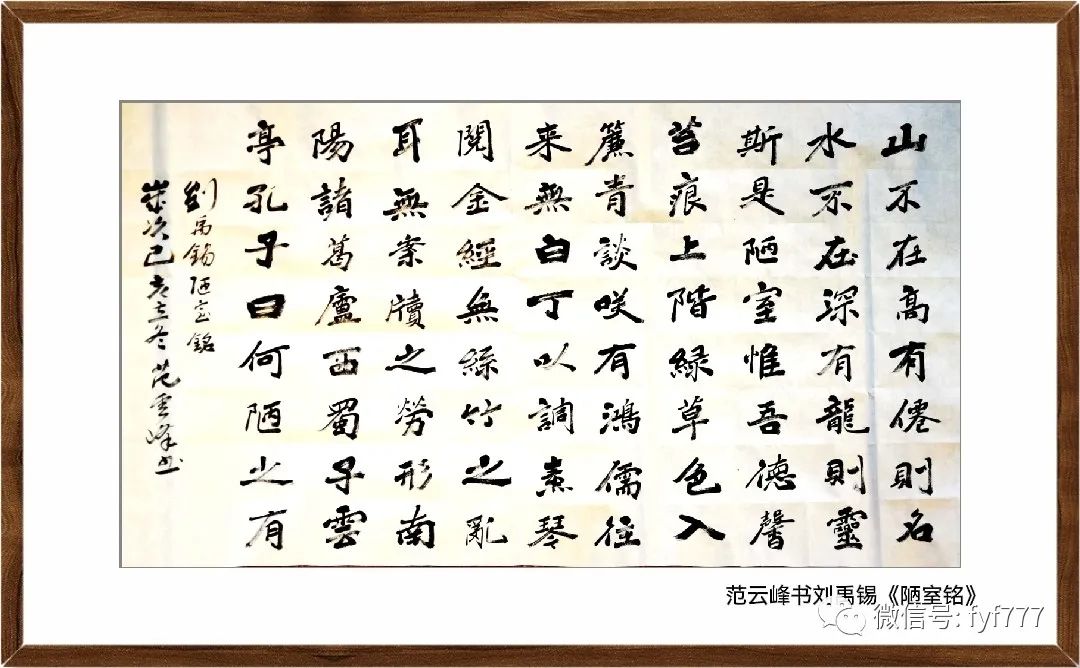 山不在高有僊則名
水不在深有龍則靈
斯是陋室惟吾德馨
苔痕上階緑草色入
簾青談咲有鴻儒往
来無白丁以調素琴
閱金經無絲竹之亂
耳無案牘之勞形南
陽諸葛廬西蜀子雲
亭孔子曰何陋之有
劉禹錫陋室銘
歲次己亥立冬范雲峰书
范云峰书刘禹锡《陋室铭》
微信号: fyf777